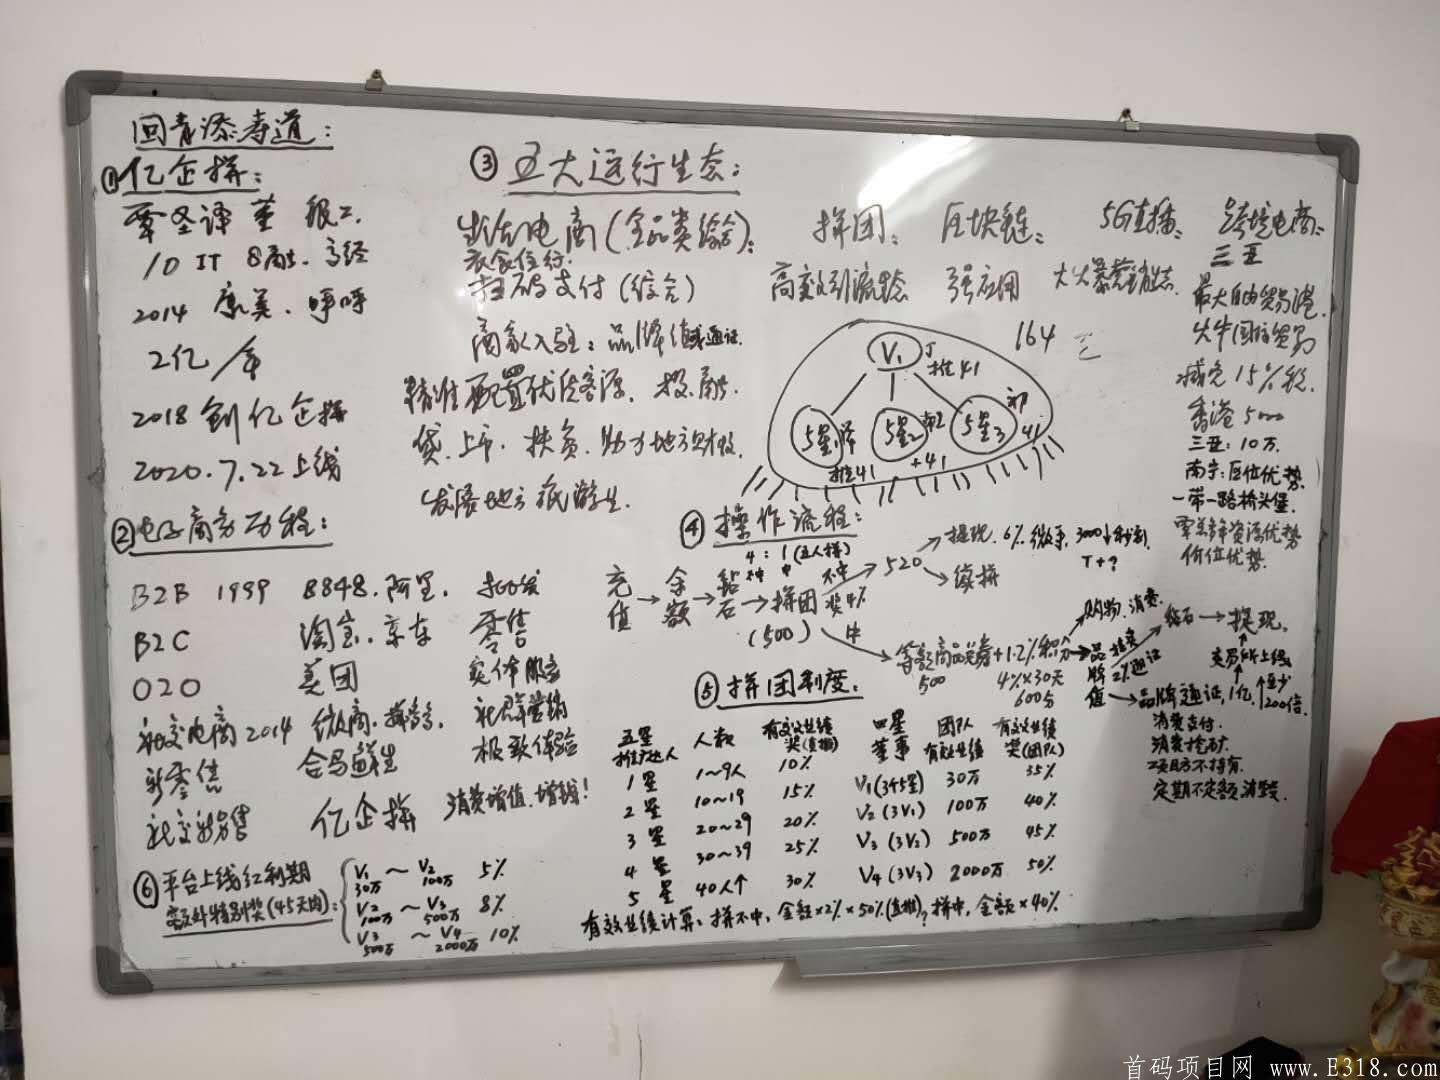 回青添寿道:
①亿企拼:
覃圣译 董 级工.
10 IT 8融. 高经
2014 康美. 呼呼
2亿/年
2018 创亿企拼
2020.7.22上线
②电子商务历程:
B2B 1999 8848.阿里. 批发
B2C 淘宝.京东 零售
O2O 美团 实体服务
社交电商2014 微商.拼多多. 社群营销
新零售 合马鲜生 极致体验
社交新零售 亿企拼 消费增值.增钱!
③五大运行生态:
生活电商(全品类综合): 拼团: 区块链: 5G直播: 跨境电商:
衣食住行.
扫码支付(综合) 高效引流 强应用 大火暴 三亚
商家入驻:品牌值或通证. 最大自由贸易港.
精准配置优质客源. 投.融. 国际贸易
贷.上市.扶贫.助力地方财政. 减免15%税.
发展地方旅游业. 香港5000
三亚:10万.
南宁:区位优势.
一带一路桥头堡.
资源优势
价位优势.
164 三
V1 推41
5星1 5星2 5星3
推41 +41 41
④操作流程:
4:1(五人拼)
不中 中
充值→余额→钻石→拼团(500)
不中 奖4%→520→提现. 6%.微手. 3000↓秒到
T+?
→续拼
中→等额商品兑券+1.2%积分
500 4%×30天
600分
→购物.消费.
品牌值 2%通证 钻石→提现.
→品牌通证,1亿,
交易所上线
↑至少200倍.
消费支付.
消费挖矿.
项目方不持有.
定期不定额消毁.
⑤拼团制度.
五星推广达人 人数 有效业绩奖(直推) 四星董事 团队有效业绩 有效业绩奖(团队)
1星 1~9人 10% V1(3个5星) 30万 35%
2星 10~19 15% V2(3V1) 100万 40%
3星 20~29 20% V3(3V2) 500万 45%
4星 30~39 25% V4(3V3) 2000万 50%
5星 40人↑ 30%
有效业绩计算:拼不中,金额×2%×50%(直推);拼中,金额×40%
⑥平台上线红利期
额外特别奖(45天内):
V1 30万~V2 100万 5%
V2 100万~V3 500万 8%
V3 500万~V4 2000万 10%
首码项目网 www.E318.com